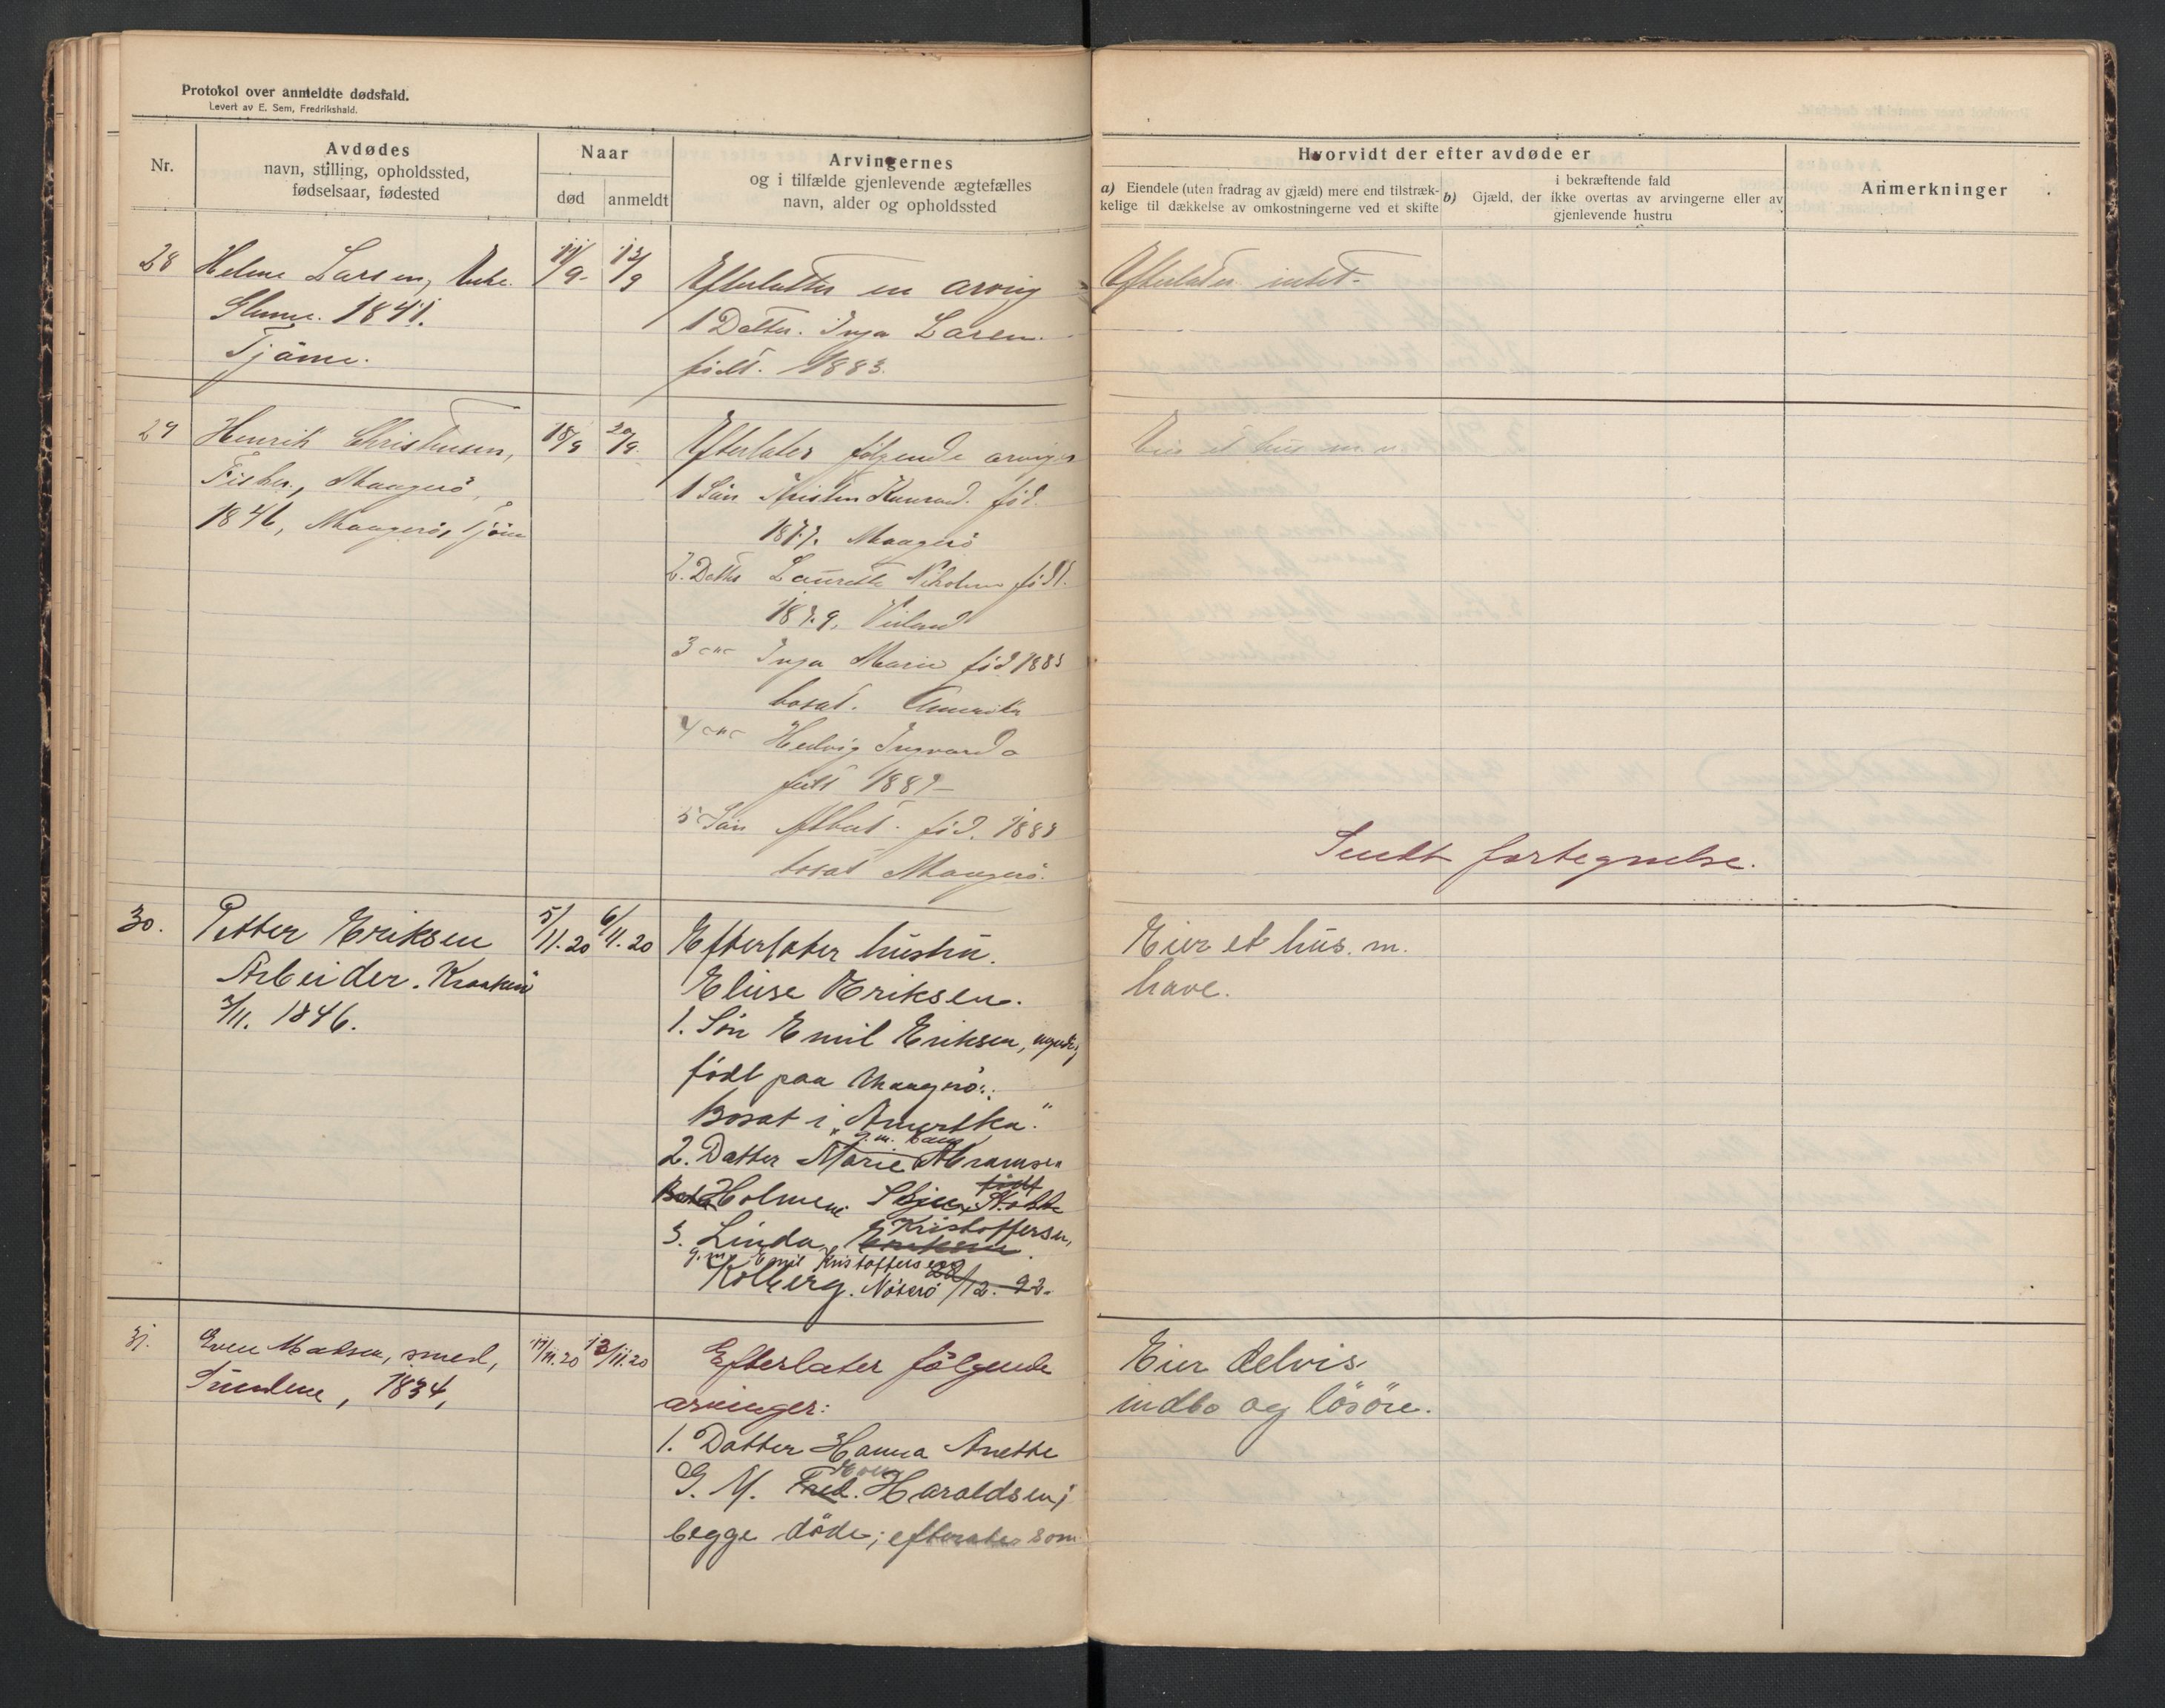 Protokol over anmeldte dødsfald.
Levert av E. Sem, Fredrikshald.
Nr.
Avdødes
navn, stilling, opholdssted,
fødselsaar, fødested
Naar
død
anmeldt
Arvingernes
og i tilfælde gjenlevende ægtefælles
navn, alder og opholdssted
Hvorvidt der efter avdøde er
a) Eiendele (uten fradrag av gjæld) mere end tilstræk-
kelige til dækkelse av omkostningerne ved et skifte
i bekræftende fald
b) Gjæld, der ikke overtas av arvingerne eller av
gjenlevende hustru
Anmerkninger
28
Helene Larsen, Enke.
1841.
Tjøme.
11/9-
13/9
Efterlatter en arving
1 Datter. Inga Larsen.
født. 1883.
Efterlater intet-
29
Henrik Christensen,
Fisker, Maagerø,
1846, Maagerø, Tjøme
18/9
20/9.
Efterlater følgende arvinger
1 Søn Kristen Konrad. fød.
1877. Maagerø
2. Datter Laurette Nikoline født.
1879.
3 -"- Inga Marie fød 1885
bosat. Amerika
4 -"- Hedvig Ingvarda
født 1887-
5 Søn Albert. fød. 1888
bosat Maagerø.
Eier et hus m.
Sendt fortegnelse.
30.
Petter Eriksen
Arbeider.
/11. 1846.
5/11.20
6/11.20
Efterlater hustru.
Elise Eriksen.
1. Søn Emil Eriksen,
født paa Maagerø.
Bosat i "Amerika"
2. Datter Marie Abramsen
g.m.
Holmene Stokke
født
3. Linda Eriksen Kristoffersen,
g.m. Emil Kristoffersen
Kolberg. Nøterø 28/12. 92.
Eier et hus. m.
have.
31.
Even Madsen, smed,
Sundene, 1834,
11/11.20
12/11.20
Efterlater følgende
arvinger:
1. Datter Hanna Anette
G. M. Fred. Even Haraldsen;
begge døde; efterlater som
Eier delvis
indbo og løsøre.